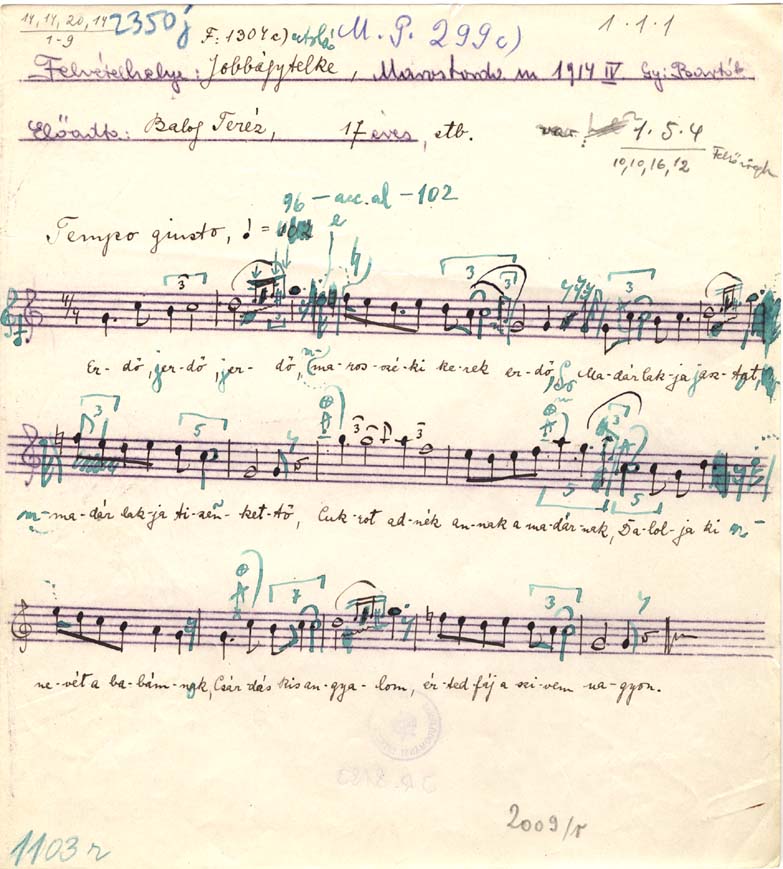 14, 14, 20, 14 2350j F: 1304 c) utolsó M. P. 299c) 1 · 1 · 1
1-9
Felvétel helye: Jobbágytelke, Marostorda m 1914 IV Gy: Bartók
Előadta: Balog Teréz, 17 éves, stb. var 1 · 5 · 4
10,10,16,12
96 – acc. al – 102
Tempo giusto, = 102
3 3 3 3
4/4
Er - dő, jer - dő, jer - dő, ma - ros - szé - ki ke - rek er - dő, Ma - dár lak - ja jasz - tat,
3 5 3 3 3
5 5
m - ma - dár lak - ja ti - zen - ket - tő, Cuk - rot ad - nék an - nak a ma - dár - nak, Da - lol - ja ki
7 3
ne - vét a ba - bám - nak, Csár - dás kis an - gya - lom, ér - ted fáj a szi - vem na - gyon.
2009/r
1103 r